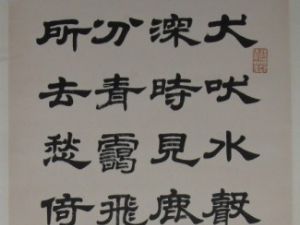 犬吠水聲
深時見鹿
分青靄飛
所去愁倚